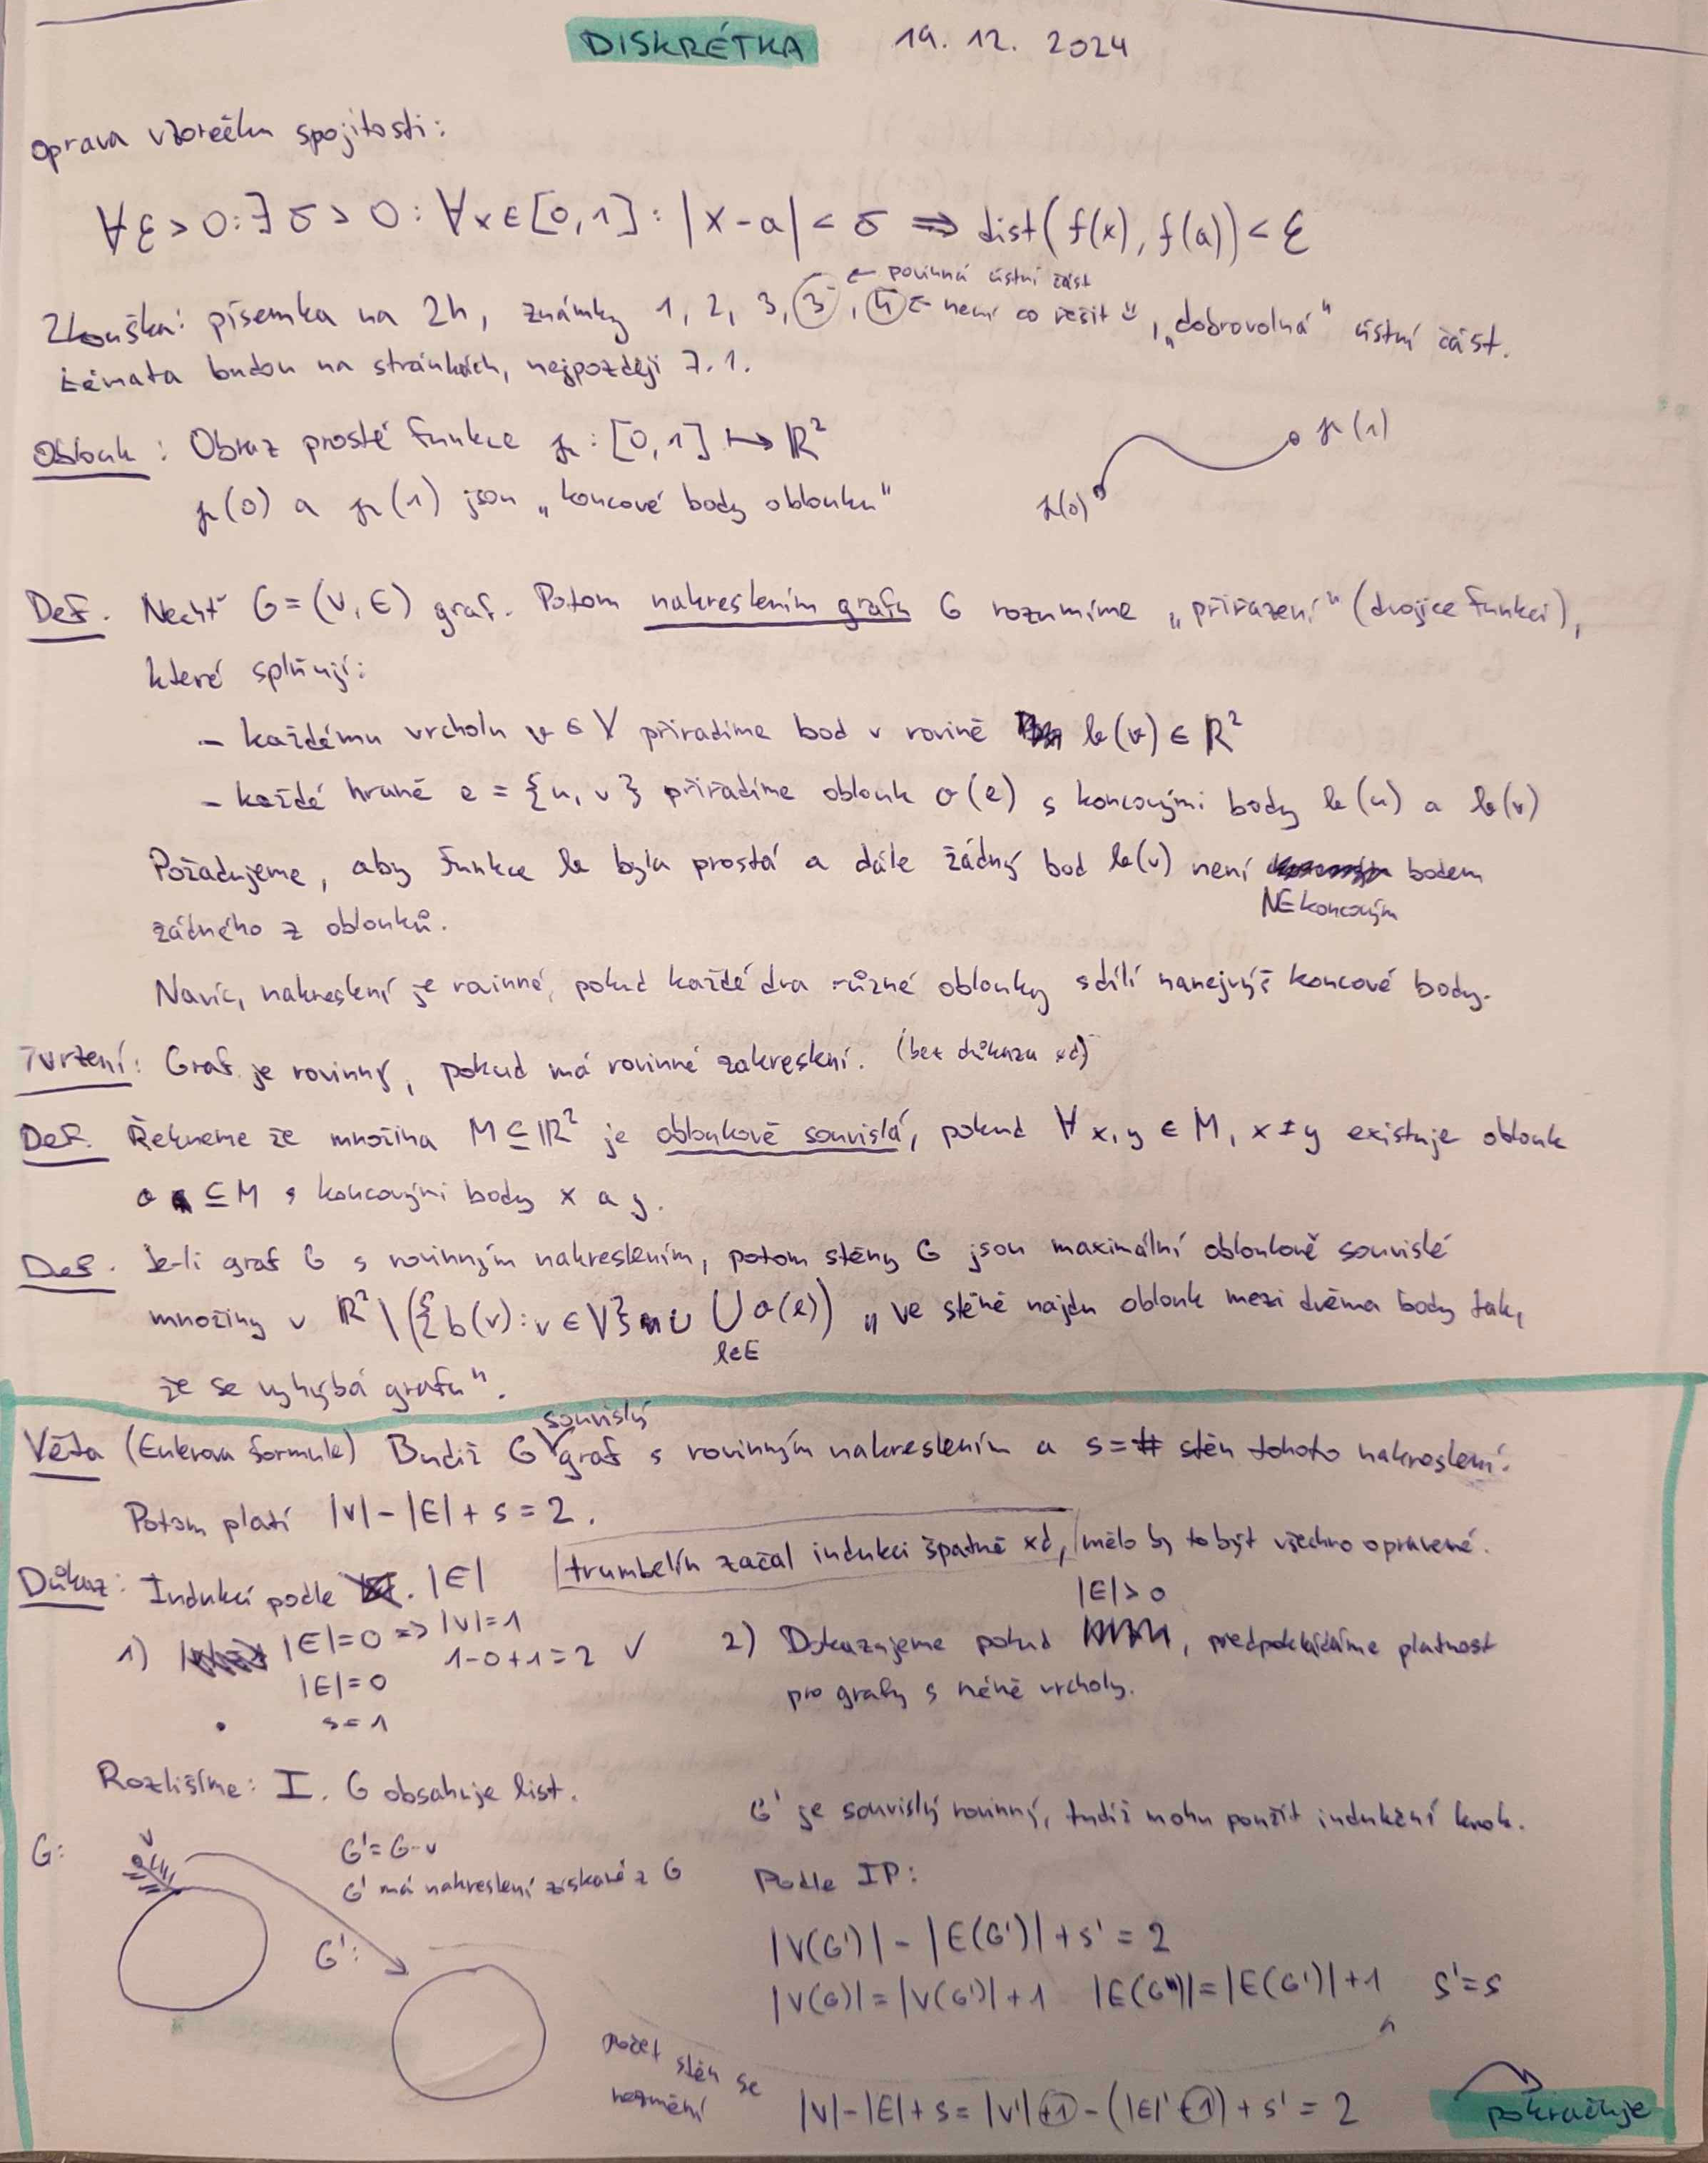 DISKRÉTKA 19. 12. 2024
oprava vzorečku spojitosti:
∀ε > 0: ∃ σ > 0 : ∀x ∈ [0,1] : |x - a| < σ ⇒ dist(f(x), f(a)) < ε
← povinná ústní část
Zkouška: písemka na 2h, známky 1, 2, 3, 3⁻, 4 ← není co řešit ü, „dobrovolná" ústní část.
témata budou na stránkách, nejpozději 7.1.
Oblouk: Obraz prosté funkce γ : [0,1] ↦ ℝ²
γ(1)
γ(0) a γ(1) jsou „koncové body oblouku"
γ(0)
Def. Nechť G = (V, E) graf. Potom nakreslením grafu G rozumíme „přiřazení" (dvojice funkcí),
které splňují:
- každému vrcholu v ∈ V přiřadíme bod v rovině b(v) ∈ ℝ²
- každé hraně e = {u, v} přiřadíme oblouk o(e) s koncovými body b(u) a b(v)
Požadujeme, aby funkce b byla prostá a dále žádný bod b(v) není bodem
NEkoncovým
žádného z oblouků.
Navíc, nakreslení je rovinné, pokud každé dva různé oblouky sdílí nanejvýš koncové body.
Tvrzení: Graf je rovinný, pokud má rovinné zakreslení. (bez důkazu xd)
Def. Řekneme že množina M ⊆ ℝ² je obloukově souvislá, pokud ∀ x, y ∈ M, x ≠ y existuje oblouk
o ⊆ M s koncovými body x a y.
Def. Je-li graf G s rovinným nakreslením, potom stěny G jsou maximální obloukově souvislé
množiny v ℝ² \ ({b(v) : v ∈ V} ∪ ⋃ o(e)) „ve stěně najdu oblouk mezi dvěma body tak,
e∈E
že se vyhýbá grafu".
souvislý
Věta (Eulerova formule) Budiž G graf s rovinným nakreslením a s = # stěn tohoto nakreslení.
Potom platí |V| - |E| + s = 2.
trumbelín začal indukci špatně xd, mělo by to být všechno opravené.
Důkaz: Indukcí podle |E|
|E| > 0
1) |E| = 0 => |V| = 1
1-0+1=2 ✓
|E| = 0
s = 1
2) Dokazujeme pokud , předpokládáme platnost
pro grafy s méně vrcholy.
Rozlišíme: I. G obsahuje list.
G' je souvislý rovinný, tudíž mohu použít indukční krok.
G: v
G' = G - v
G' má nakreslení získané z G
G':
Podle IP:
|V(G')| - |E(G')| + s' = 2
|V(G)| = |V(G')| + 1 |E(G)| = |E(G')| + 1 s' = s
počet stěn se
nezmění
|V| - |E| + s = |V'| + 1 - (|E|' + 1) + s' = 2
pokračuje